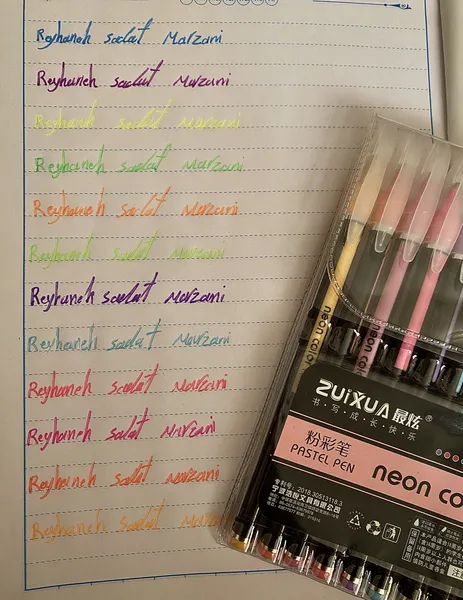 Reyhaneh sadat Marzani
Reyhaneh sadat Marzani
Reyhaneh sadat Marzani
Reyhaneh sadat Marzani
Reyhaneh sadat Marzani
Reyhaneh sadat Marzani
Reyhaneh sadat Marzani
Reyhaneh sadat Marzani
Reyhaneh sadat Marzani
Reyhaneh sadat Marzani
Reyhaneh sadat Marzani
Reyhaneh sadat Marzani
neon color
neon color
ZUiXUA 最炫®
书·写·成·长·快·乐
粉彩笔
PASTEL PEN
neon co
专利号: 2018 30513118.3
宁波浩悦文具有限公司